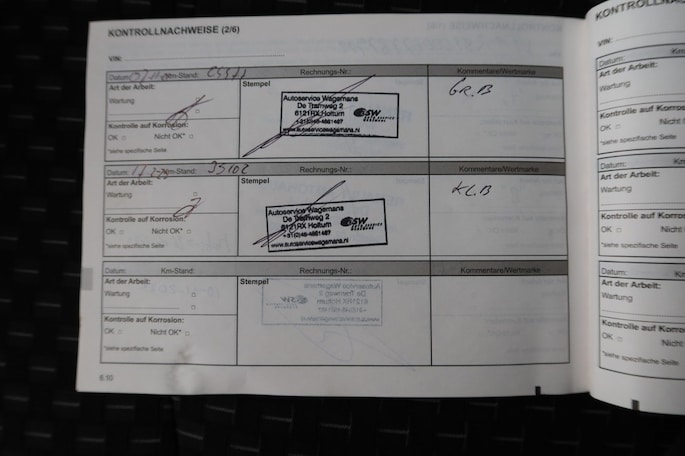 KONTROLLNACHWEISE (2/6)
VIN:
Datum: Km-Stand: Rechnungs-Nr.: Kommentare/Wertmarke
Art der Arbeit: Stempel GR.B
Wartung
Autoservice Wagemans
De Tramweg 2
6121RX Holtum
+31(0)46-4851487
www.autoservicewagemans.nl
GSW
Kontrolle auf Korrosion:
OK Nicht OK*
*siehe spezifische Seite
Datum: Km-Stand: 35102 Rechnungs-Nr.: Kommentare/Wertmarke
Art der Arbeit: Stempel KL.B
Wartung
Autoservice Wagemans
De Tramweg 2
6121RX Holtum
+31(0)46-4851487
www.autoservicewagemans.nl
GSW
Kontrolle auf Korrosion:
OK Nicht OK*
*siehe spezifische Seite
Datum: Km-Stand: Rechnungs-Nr.: Kommentare/Wertmarke
Art der Arbeit: Stempel
Wartung
Kontrolle auf Korrosion:
OK Nicht OK*
*siehe spezifische Seite
6.10
VIN:
Datum: Km
Art der Arbeit:
Wartung
Kontrolle auf Korros
OK Nicht
*siehe spezifische Seite
Datum: Km
Art der Arbeit:
Wartung
Kontrolle auf Korro
OK Nicht
*siehe spezifische Seite
Datum: Km
Art der Arbeit:
Wartung
Kontrolle auf Korr
OK Nicht
*siehe spezifische Seite